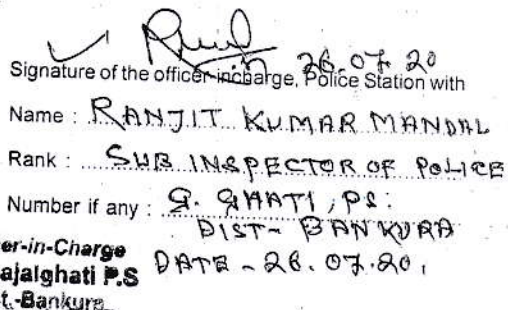 26.07.20
Signature of the officer-incharge, Police Station with
Name : RANJIT KUMAR MANDAL
Rank : SUB INSPECTOR OF POLICE
Number if any : G. GHATI, PS:
DIST- BANKURA
er-in-Charge
ajalghati P.S
DATE - 26.07.20.
t.-Bankura